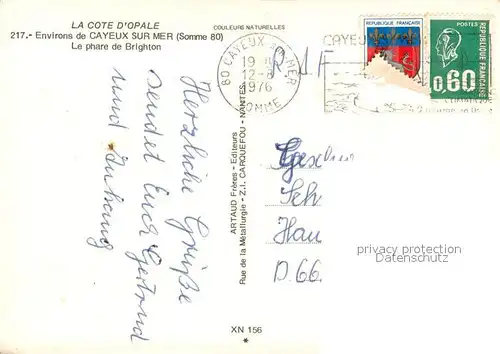 LA COTE D'OPALE
COULEURS NATURELLES
217.- Environs de CAYEUX SUR MER (Somme 80)
Le phare de Brighton
80 CAYEUX-S-MER
19 H
12-8
1976
SOMME
CAYEUX
REPUBLIQUE FRANÇAISE
POSTES
0,60
Herzliche Grüße
sendet Euch Gertrud
und Anhang
ARTAUD Frères - Editeurs
Rue de la Métallurgie - Z.I. CARQUEFOU - NANTES
Geschw
Sch
Hau
D.66
privacy protection
Datenschutz
XN 156
*